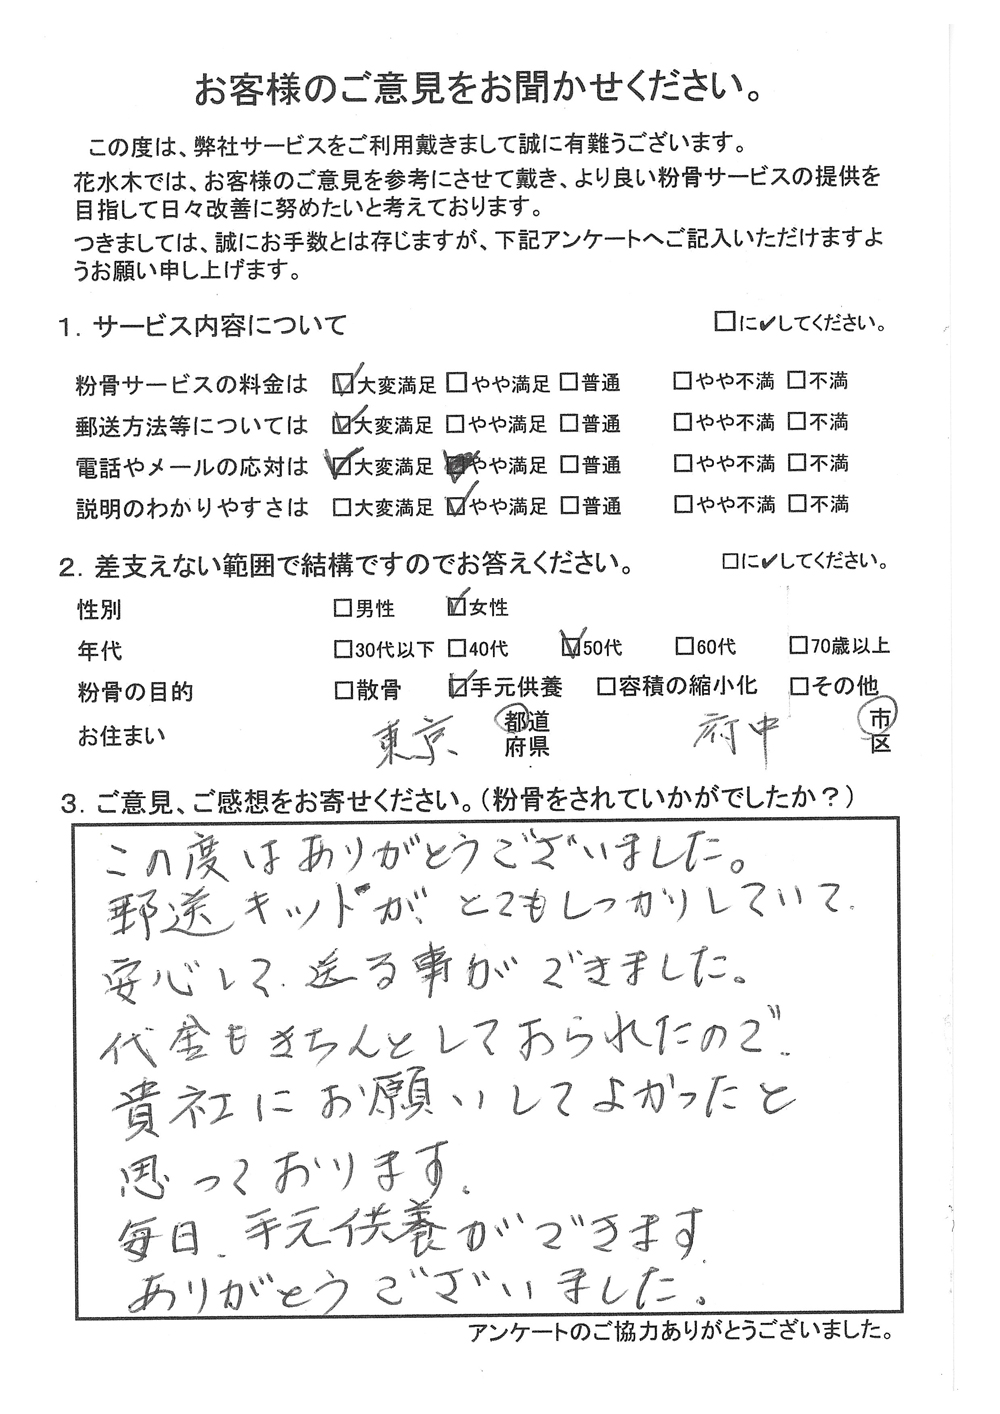 お客様のご意見をお聞かせください。
この度は、弊社サービスをご利用戴きまして誠に有難うございます。
花水木では、お客様のご意見を参考にさせて戴き、より良い粉骨サービスの提供を
目指して日々改善に努めたいと考えております。
つきましては、誠にお手数とは存じますが、下記アンケートへご記入いただけますよ
うお願い申し上げます。
1. サービス内容について □に✔してください。
粉骨サービスの料金は ☑大変満足 □やや満足 □普通 □やや不満 □不満
郵送方法等については ☑大変満足 □やや満足 □普通 □やや不満 □不満
電話やメールの応対は ☑大変満足 ■やや満足 □普通 □やや不満 □不満
説明のわかりやすさは □大変満足 ☑やや満足 □普通 □やや不満 □不満
2. 差支えない範囲で結構ですのでお答えください。 □に✔してください。
性別 □男性 ☑女性
年代 □30代以下 □40代 ☑50代 □60代 □70歳以上
粉骨の目的 □散骨 ☑手元供養 □容積の縮小化 □その他
お住まい 東京 都道府県 府中 市区
3. ご意見、ご感想をお寄せください。（粉骨をされていかがでしたか？）
この度はありがとうございました。
郵送キッドが、とてもしっかりしていて、
安心して、送る事ができました。
代金もきちんとしておられたので、
貴社にお願いしてよかったと
思っております。
毎日、手元供養ができます。
ありがとうございました。
アンケートのご協力ありがとうございました。